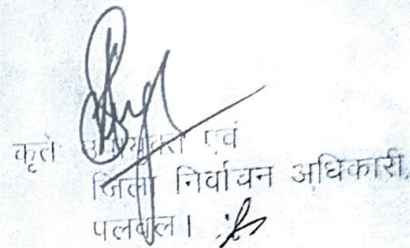 कृते उपायुक्त एवं
जिला निर्वाचन अधिकारी,
पलवल।